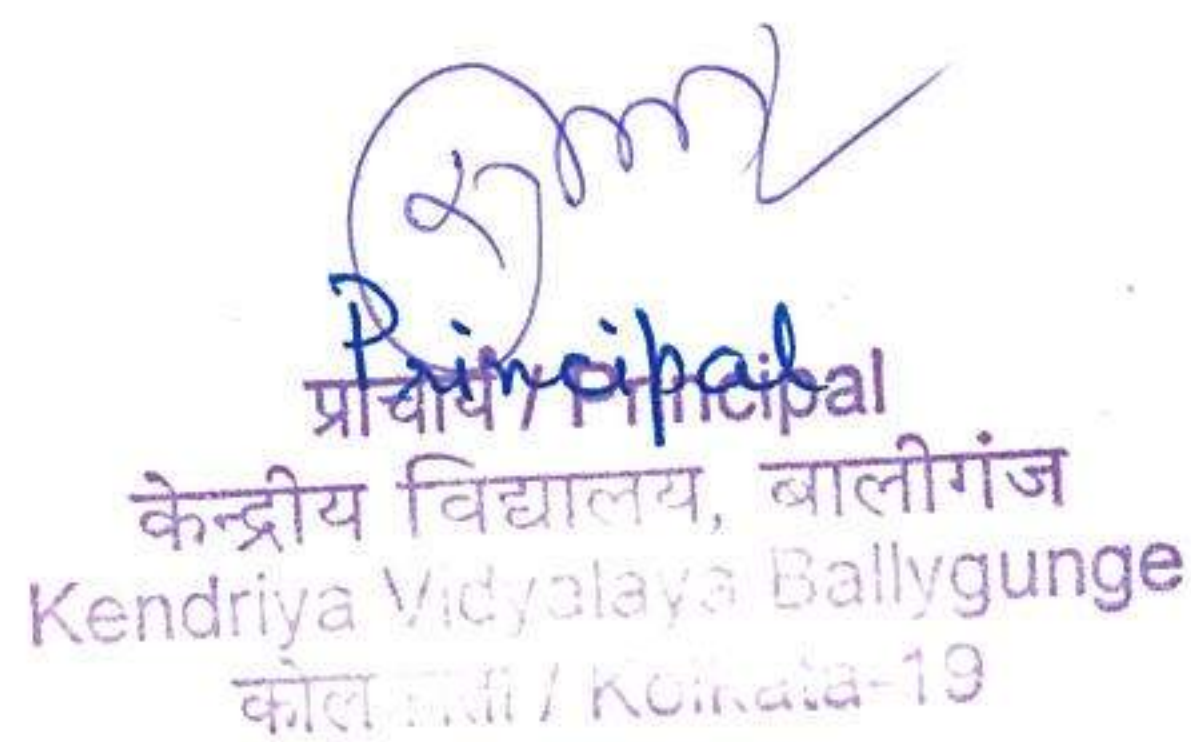 Principal
प्राचार्य / Principal
केन्द्रीय विद्यालय, बालीगंज
Kendriya Vidyalaya Ballygunge
/ Kolkata-19